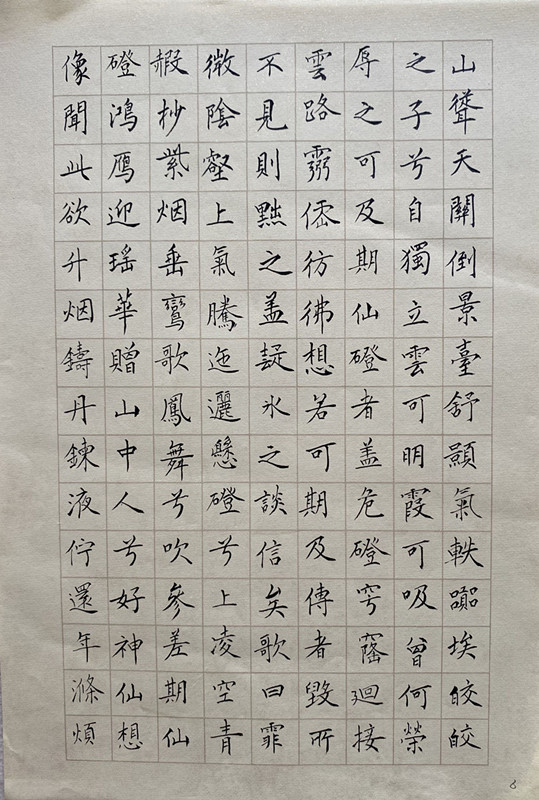 山聳天關倒景臺舒顥氣軼囂埃皎皎
之子兮自獨立雲可明霞可吸曾何榮
辱之可及期仙磴者盖危磴穹窿迴接
雲路靈僊彷彿想若可期及傳者毀所
不見則黜之盖疑氷之談信矣歌曰霏
微陰壑上氣騰迤邐懸磴兮上凌空青
赮杪紫烟垂鸞歌鳳舞兮吹參差期仙
磴鴻鴈迎瑤華贈山中人兮好神仙想
像聞此欲升烟鑄丹鍊液佇還年滌煩